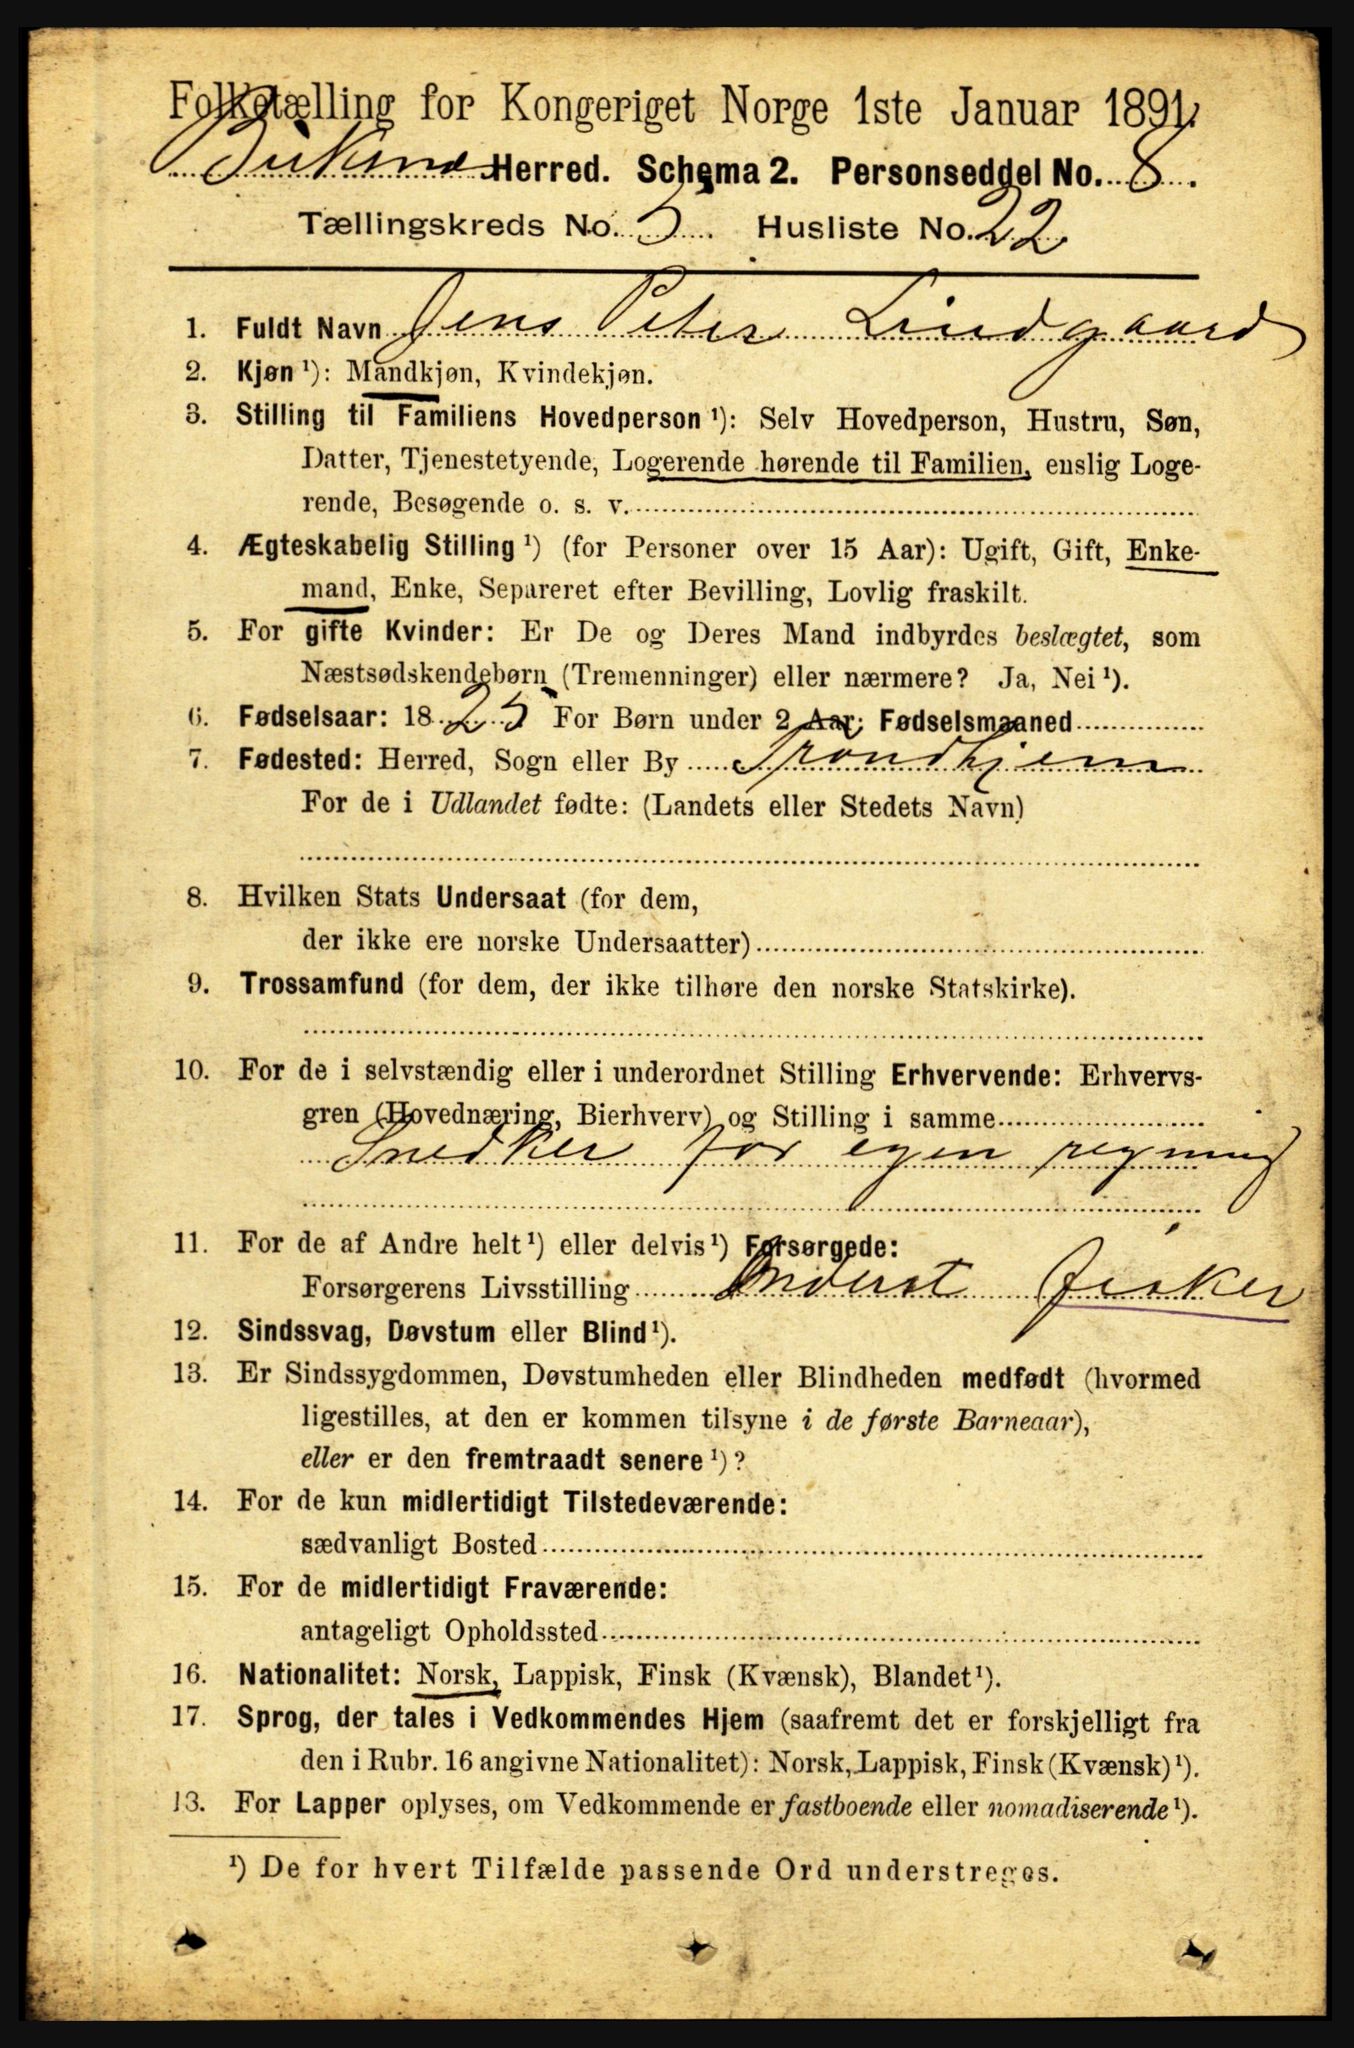 Folketælling for Kongeriget Norge 1ste Januar 1891.
Herred. Schema 2. Personseddel No. 8.
Tællingskreds No. 5. Husliste No. 22
1. Fuldt Navn Jens Peter Lindgaard
2. Kjøn ¹): Mandkjøn, Kvindekjøn.
3. Stilling til Familiens Hovedperson ¹): Selv Hovedperson, Hustru, Søn,
Datter, Tjenestetyende, Logerende hørende til Familien, enslig Loge-
rende, Besøgende o. s. v.
4. Ægteskabelig Stilling ¹) (for Personer over 15 Aar): Ugift, Gift, Enke-
mand, Enke, Separeret efter Bevilling, Lovlig fraskilt.
5. For gifte Kvinder: Er De og Deres Mand indbyrdes beslægtet, som
Næstsødskendebørn (Tremenninger) eller nærmere? Ja, Nei ¹).
6. Fødselsaar: 1825 For Børn under 2 Aar: Fødselsmaaned
7. Fødested: Herred, Sogn eller By Trondhjem
For de i Udlandet fødte: (Landets eller Stedets Navn)
8. Hvilken Stats Undersaat (for dem,
der ikke ere norske Undersaatter)
9. Trossamfund (for dem, der ikke tilhøre den norske Statskirke).
10. For de i selvstændig eller i underordnet Stilling Erhvervende: Erhvervs-
gren (Hovednæring, Bierhverv) og Stilling i samme
Snedker for egen regning
11. For de af Andre helt ¹) eller delvis ¹) Forsørgede:
Forsørgerens Livsstilling Inderst Fisker
12. Sindssvag, Døvstum eller Blind ¹).
13. Er Sindssygdommen, Døvstumheden eller Blindheden medfødt (hvormed
ligestilles, at den er kommen tilsyne i de første Barneaar),
eller er den fremtraadt senere ¹)?
14. For de kun midlertidigt Tilstedeværende:
sædvanligt Bosted
15. For de midlertidigt Fraværende:
antageligt Opholdssted
16. Nationalitet: Norsk, Lappisk, Finsk (Kvænsk), Blandet ¹).
17. Sprog, der tales i Vedkommendes Hjem (saafremt det er forskjelligt fra
den i Rubr. 16 angivne Nationalitet): Norsk, Lappisk, Finsk (Kvænsk) ¹).
13. For Lapper oplyses, om Vedkommende er fastboende eller nomadiserende ¹).
¹) De for hvert Tilfælde passende Ord understreges.